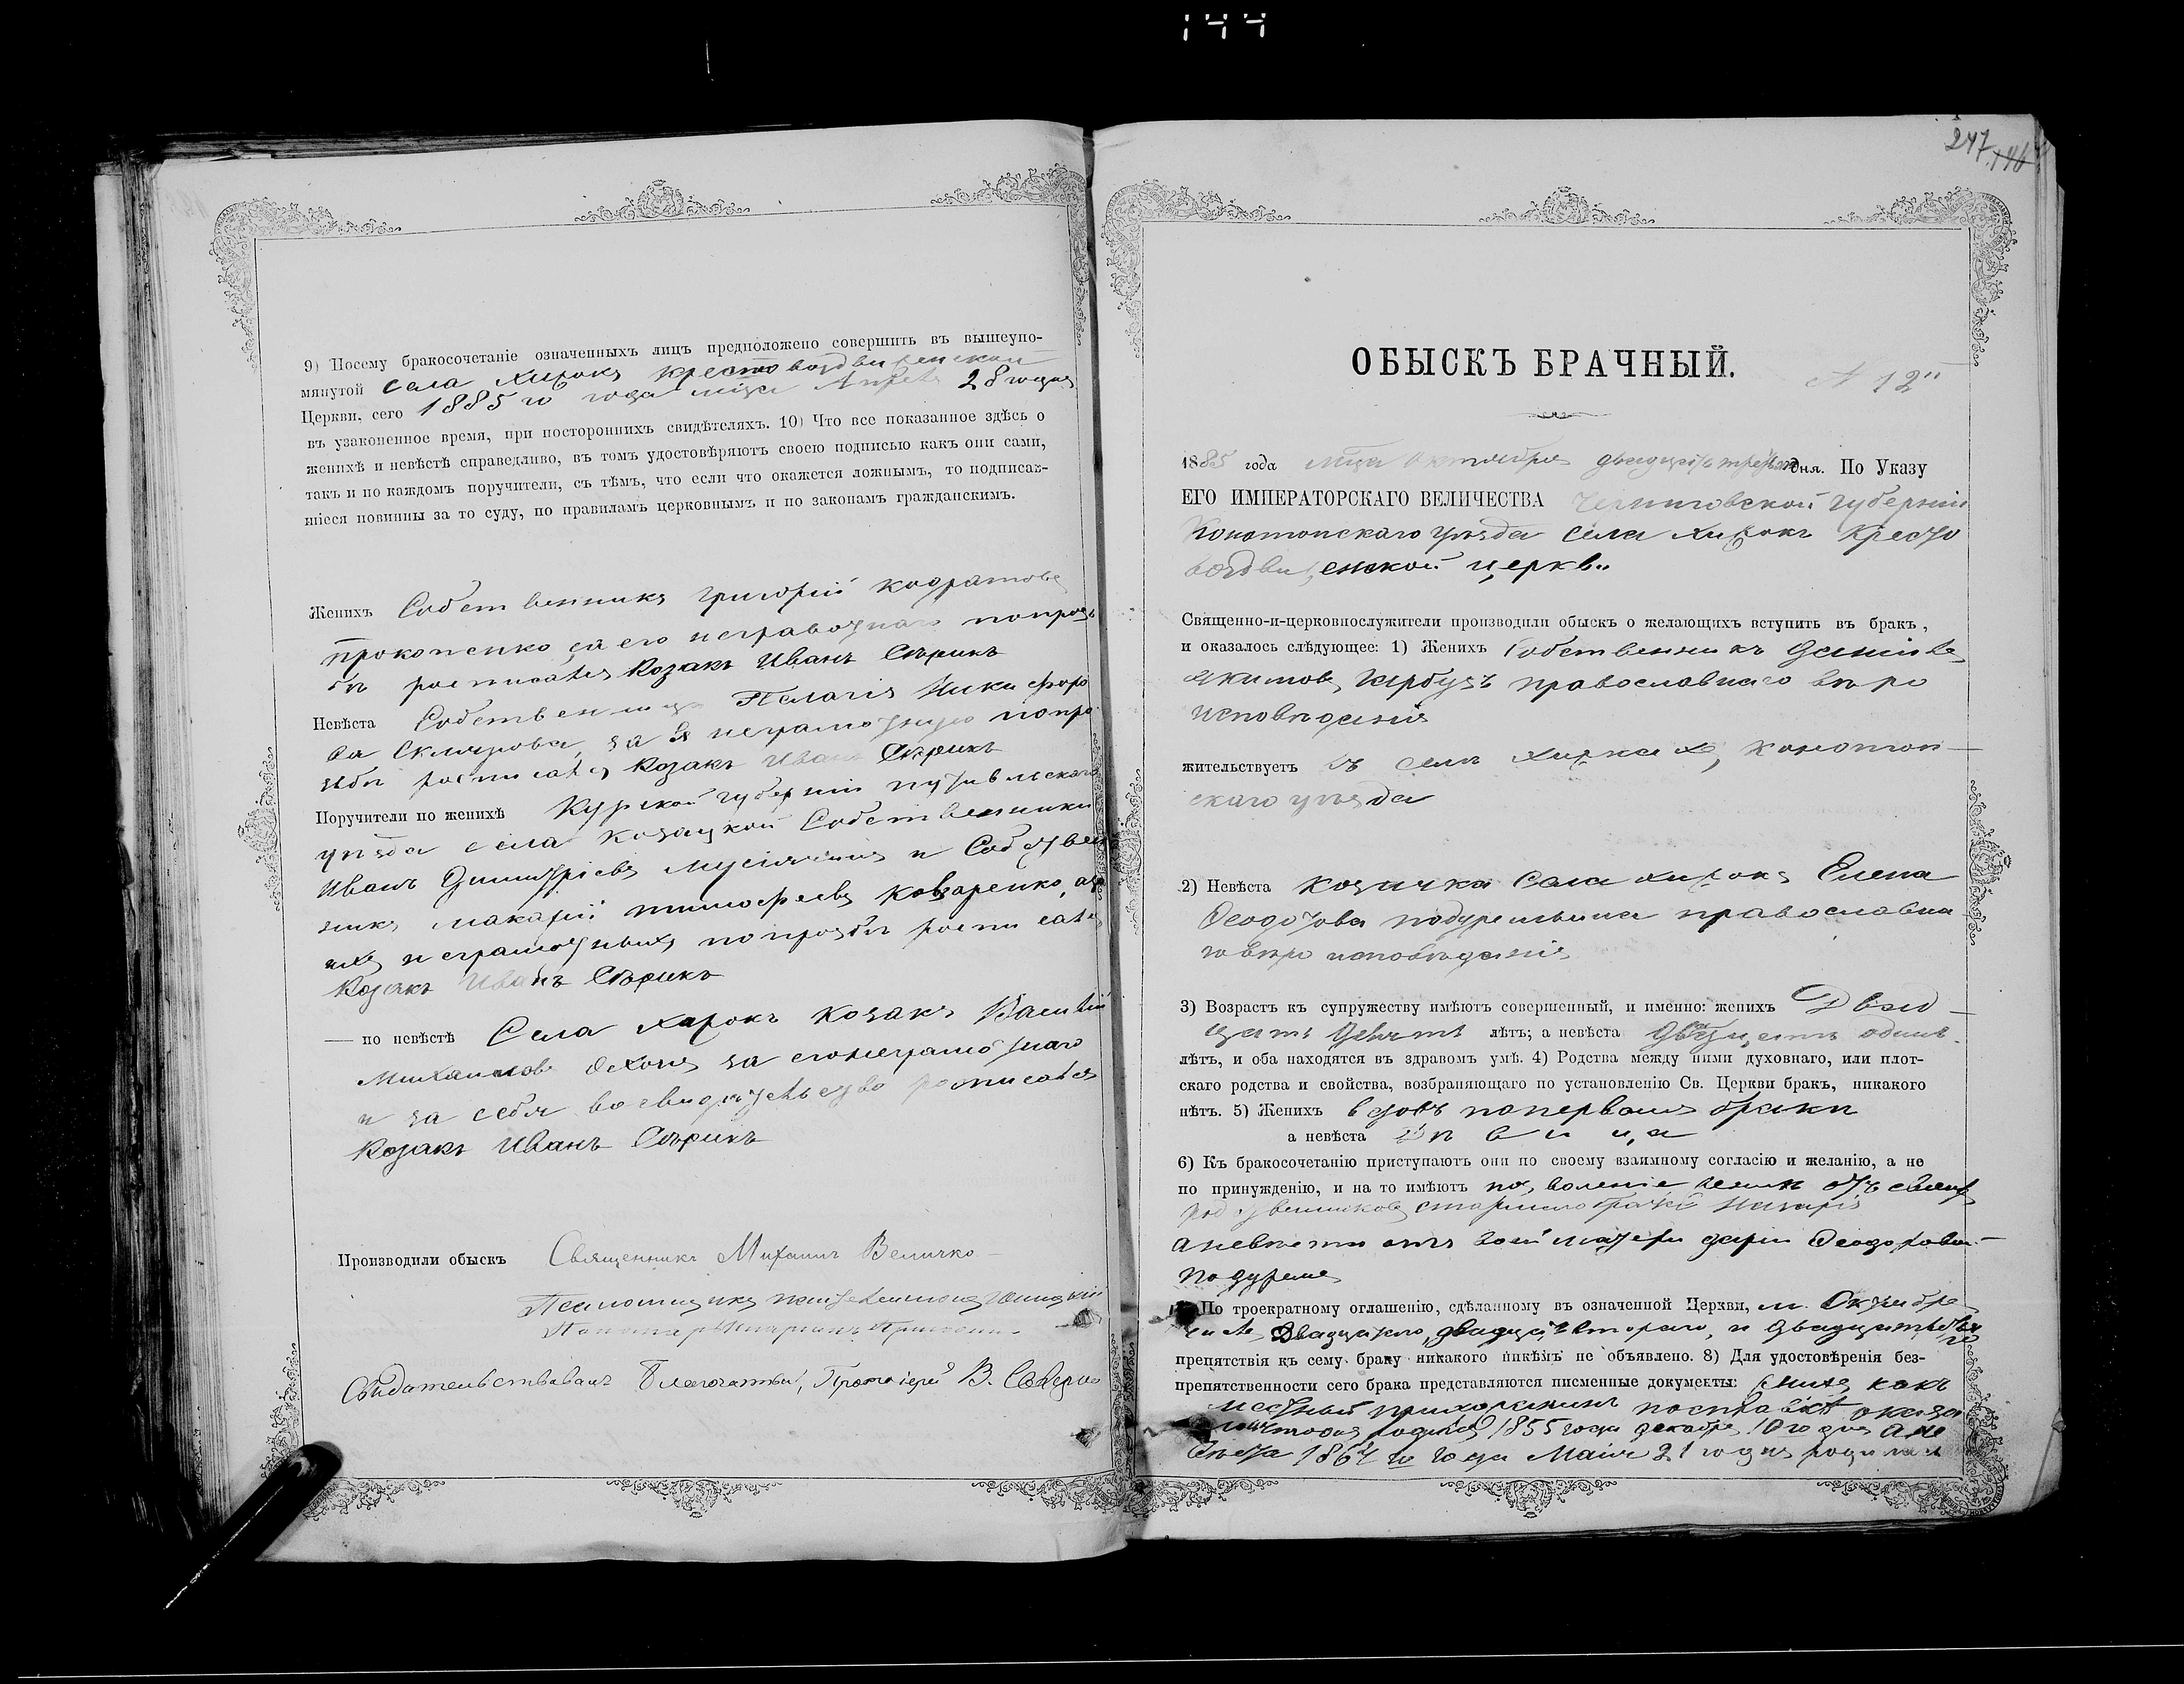 144
9) Посему бракосочетаніе означенныхъ лицъ предположено совершить въ вышеупо-
мянутой села Хижокъ Крестовоздвиженской
Церкви, сего 1885 го года мца Апреля 28 го дня
въ узаконенное время, при постороннихъ свидѣтеляхъ. 10) Что все показанное здѣсь о
женихѣ и невѣстѣ справедливо, въ томъ удостовѣряютъ своею подписью какъ они сами,
такъ и по каждомъ поручители, съ тѣмъ, что если что окажется ложнымъ, то подписав-
шіеся повинны за то суду, по правиламъ церковнымъ и по законамъ гражданскимъ.
Женихъ Собственникъ Григорій Кодратовъ
Прокопенко за его неграмотнаго по прозь
бѣ росписался Козакъ Иванъ Сѣрикъ
Невѣста Собственница Пелагія Никифоро
ва Склярова, за ея неграмотную по про
зьбѣ росписался Козакъ Иванъ Сѣрикъ
Поручители по женихѣ Курской губерніи Путивльскаго
уѣзда села Козацкой Собственники
Иванъ Димитріевъ и Собствен
никъ Макарій Тимофеевъ Ковзаренко, а за
ихъ неграмотныхъ по прозьбѣ росписался
Козакъ Иванъ Сѣрикъ
— по невѣстѣ Села Хижокъ Козакъ Василій
Михаиловъ за его неграмотнаго
и за себя во свидѣтельство росписался
Козакъ Иванъ Сѣрикъ
Производили обыскъ Священникъ Михаилъ Величко
Псаломщикъ
Пономарь
Свидѣтельствовалъ Благочинный, Протоіерей В.
247 146
ОБЫСКЪ БРАЧНЫЙ.
№ 12
1885 года мца Октября двадцать третьяго дня. По Указу
ЕГО ИМПЕРАТОРСКАГО ВЕЛИЧЕСТВА Черниговской губерніи
Конотопскаго уѣзда села Хижокъ Кресто
воздвиженской церкви
Священно-и-церковнослужители производили обыскъ о желающихъ вступить въ бракъ,
и оказалось слѣдующее: 1) Женихъ Собственникъ Даніилъ
Якимовъ Гарбузъ православнаго вѣро
исповѣданія
жительствуетъ въ селѣ Хижкахъ, Конотоп-
скаго уѣзда
2) Невѣста козачка села Хижокъ Елена
Ѳеодотова православна
го вѣроисповѣданія
3) Возрастъ къ супружеству имѣютъ совершенный, и именно: женихъ Двад-
цать девять лѣтъ; а невѣста двадцать одинъ
лѣтъ, и оба находятся въ здравомъ умѣ. 4) Родства между ними духовнаго, или плот-
скаго родства и свойства, возбраняющаго по установленію Св. Церкви бракъ, никакого
нѣтъ. 5) Женихъ вдовъ по первомъ бракѣ
а невѣста Дѣвица
6) Къ бракосочетанію приступаютъ они по своему взаимному согласію и желанію, а не
по принужденію, и на то имѣютъ позволеніе женихъ отъ своихъ
родственниковъ старшаго брата
а невѣста отъ своей матери Даріи Ѳеодоровой
7) По троекратному оглашенію, сдѣланному въ означенной Церкви, м. Октября
числъ Двадцатаго, двадцать втораго, и двадцать третьяго
препятствія къ сему браку никакого никѣмъ не объявлено. 8) Для удостовѣренія без-
препятственности сего брака представляются писменные документы: женихъ какъ
мѣстный прихожанинъ по справкѣ оказа
лось родился 1855 года декабря 10 го дня а не
вѣста 1864 го года Маія 21 го дня родилась